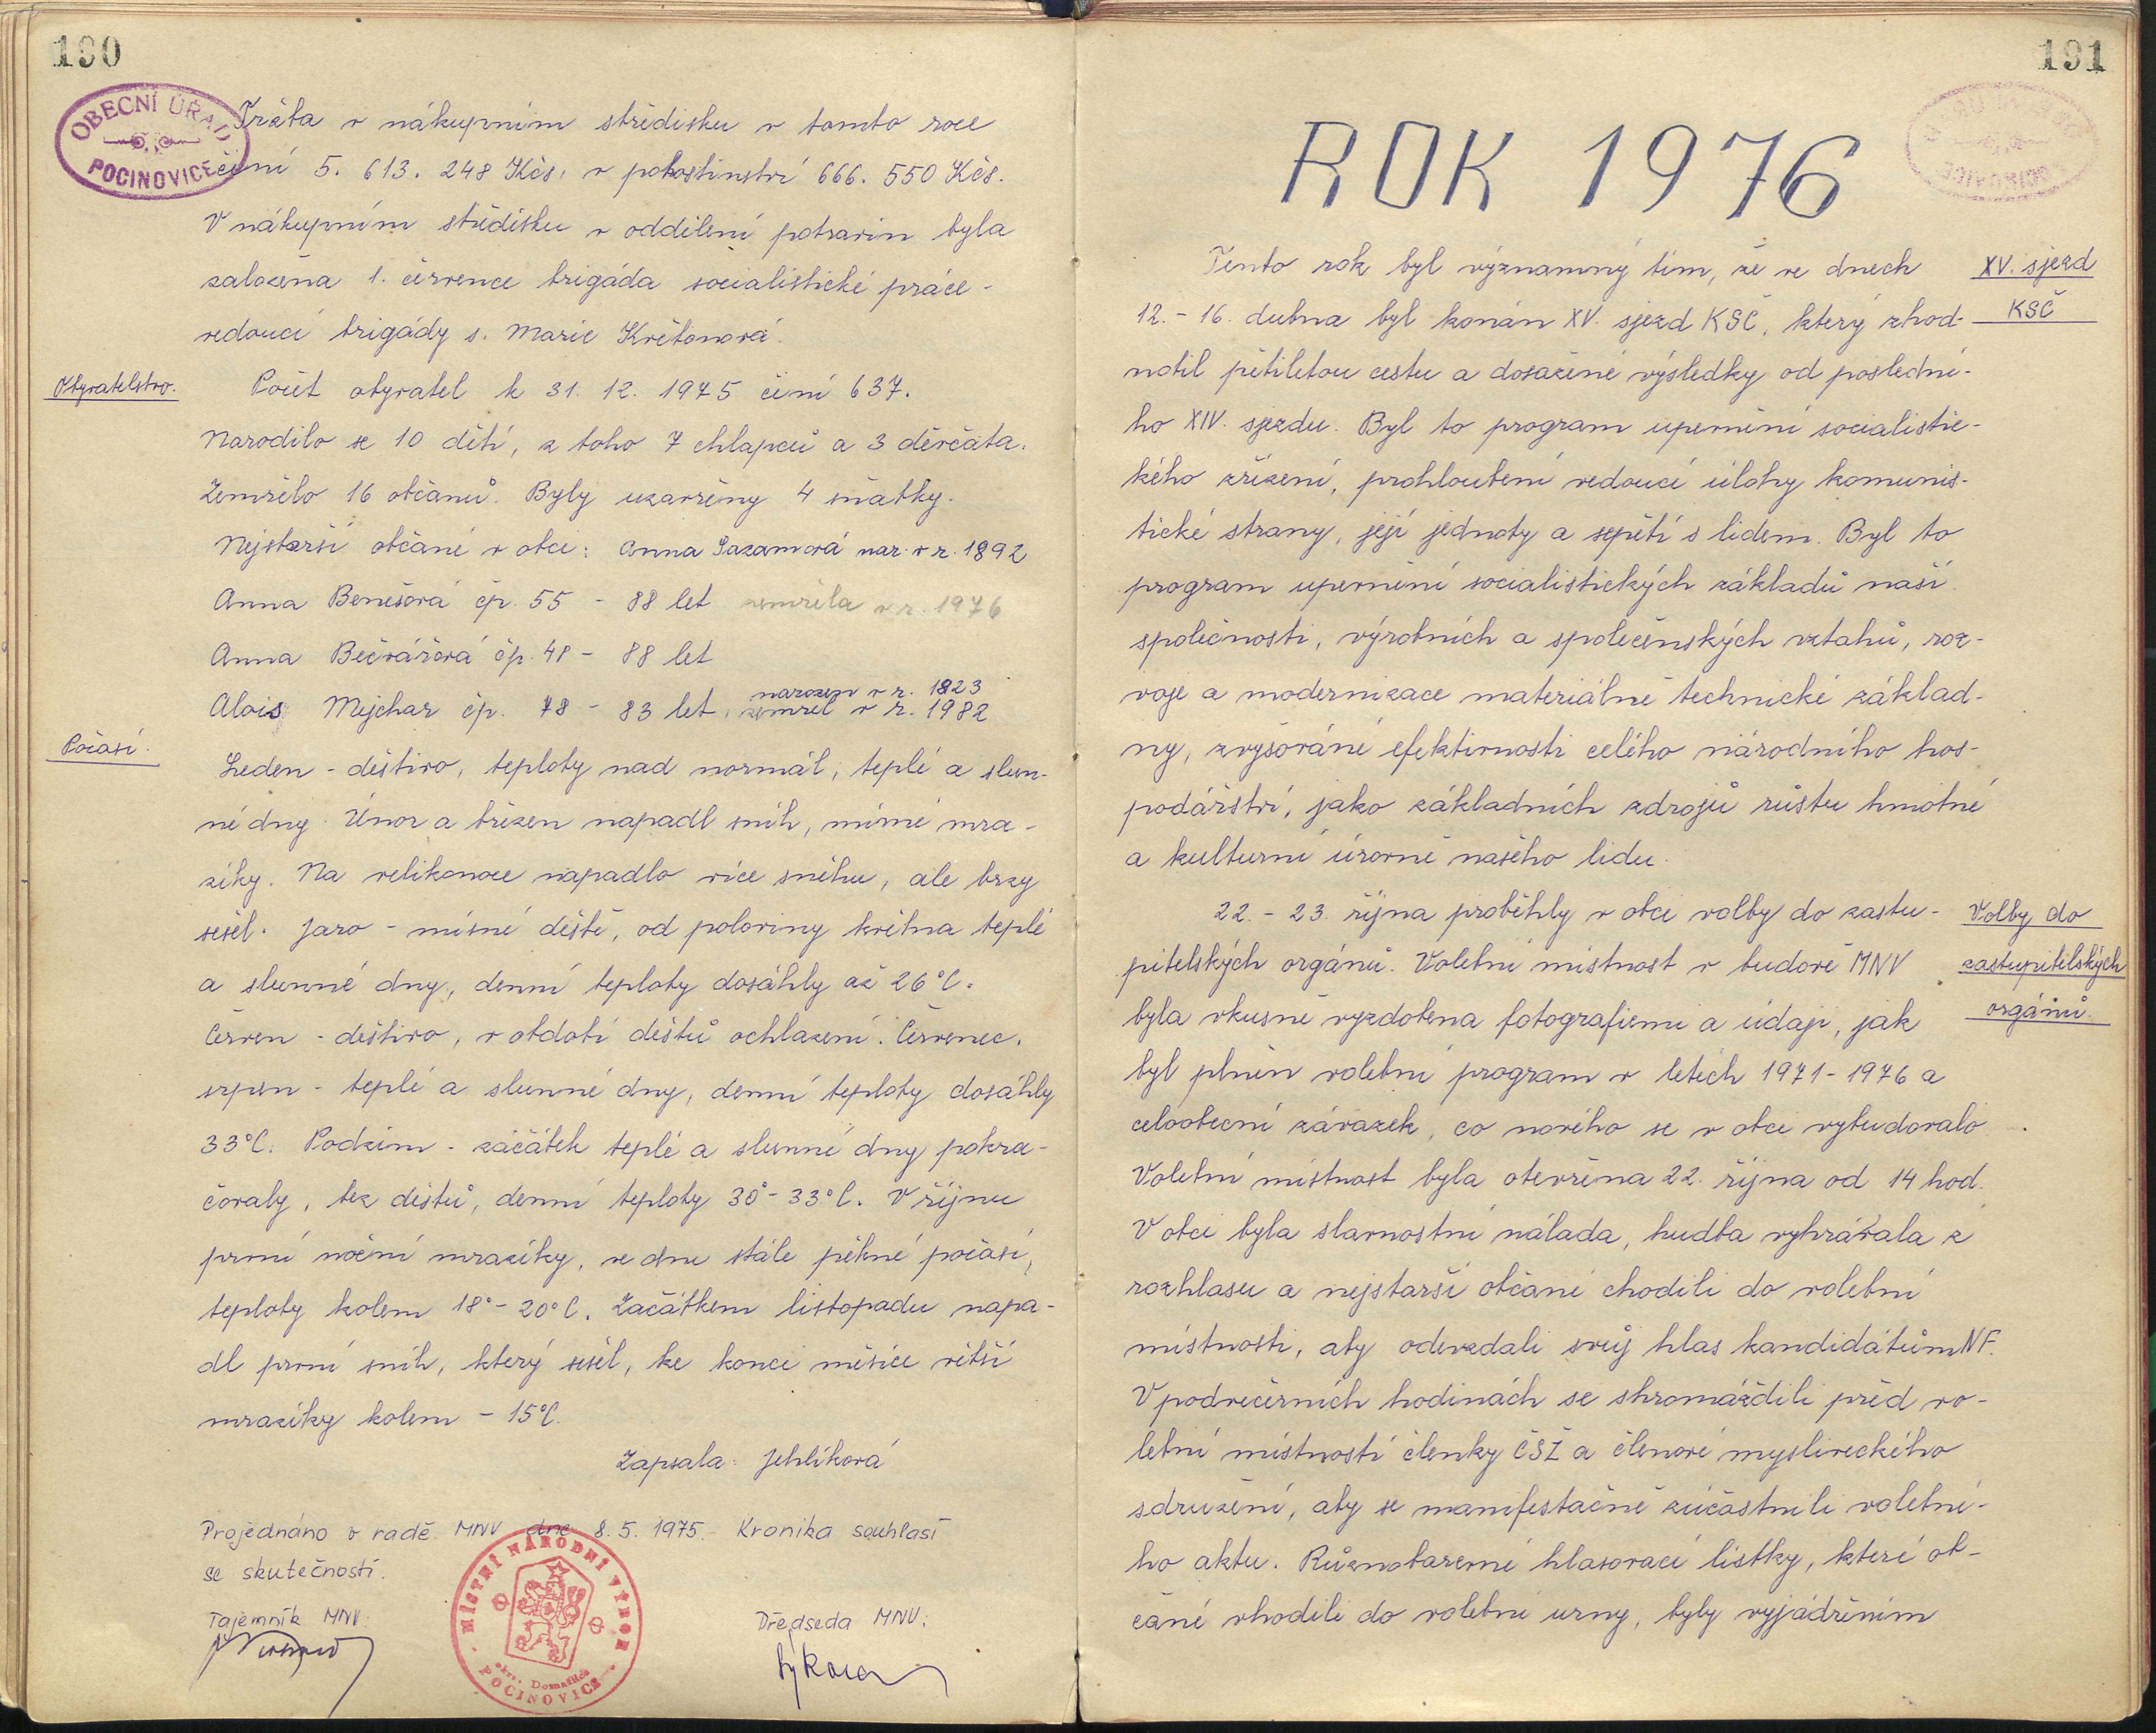 190
OBECNÍ ÚŘAD
POCINOVICE
Tržba v nákupním středisku v tomto roce
činí 5. 613. 248 Kčs, v pohostinství 666. 550 Kčs.
V nákupním středisku v oddělení potravin byla
založena 1. července brigáda socialistické práce -
vedoucí brigády s. Marie Květoňová.
Obyvatelstvo.
Počet obyvatel k 31. 12. 1975 činí 637.
Narodilo se 10 dětí, z toho 7 chlapců a 3 děvčata.
Zemřelo 16 občanů. Byly uzavřeny 4 sňatky.
Nejstarší občané v obci: Anna Sazamová nar. v r. 1892
Anna Benešová čp. 55 - 88 let zemřela v r. 1976
Anna Bečvářová čp. 48 - 88 let
narozen v r. 1823
Alois Mejchar čp. 78 - 83 let, zemřel v r. 1982
Počasí.
Leden - deštivo, teploty nad normál, teplé a slun-
né dny. Únor a březen napadl sníh, mírné mra-
zíky. Na velikonoce napadlo více sněhu, ale brzy
sešel. Jaro - mírné deště, od poloviny května teplé
a slunné dny, denní teploty dosáhly až 26°C.
Červen - deštivo, v období dešťů ochlazení. Červenec,
srpen - teplé a slunné dny, denní teploty dosáhly
33°C. Podzim - začátek teplé a slunné dny pokra-
čovaly, bez dešťů, denní teploty 30° - 33°C. V říjnu
první noční mrazíky, ve dne stále pěkné počasí,
teploty kolem 18° - 20°C. Začátkem listopadu napa-
dl první sníh, který sešel, ke konci měsíce větší
mrazíky kolem - 15°C.
Zapsala: Jehlíková
Projednáno v radě MNV dne 8. 5. 1975. - Kronika souhlasí
se skutečností.
Tajemník MNV:
Předseda MNV:
MÍSTNÍ NÁRODNÍ VÝBOR
okr. Domažlice
POCINOVICE
191
ROK 1976
Tento rok byl významný tím, že ve dnech
XV. sjezd
12. - 16. dubna byl konán XV. sjezd KSČ, který zhod-
KSČ
notil pětiletou cestu a dosažené výsledky od poslední-
ho XIV. sjezdu. Byl to program upevnění socialistic-
kého zřízení, prohloubení vedoucí úlohy komunis-
tické strany, její jednoty a sepětí s lidem. Byl to
program upevnění socialistických základů naší
společnosti, výrobních a společenských vztahů, roz-
voje a modernizace materiálně technické základ-
ny, zvyšování efektivnosti celého národního hos-
podářství, jako základních zdrojů růstu hmotné
a kulturní úrovně našeho lidu.
22. - 23. října proběhly v obci volby do zastu-
Volby do
pitelských orgánů. Volební místnost v budově MNV
zastupitelských
byla vkusně vyzdobena fotografiemi a údaji, jak
orgánů.
byl plněn volební program v letech 1971 - 1976 a
celoobecní závazek, co nového se v obci vybudovalo.
Volební místnost byla otevřena 22. října od 14 hod.
V obci byla slavnostní nálada, hudba vyhrávala z
rozhlasu a nejstarší občané chodili do volební
místnosti, aby odevzdali svůj hlas kandidátům NF.
V podvečerních hodinách se shromáždili před vo-
lební místností členky ČSŽ a členové mysliveckého
sdružení, aby se manifestačně zúčastnili volební-
ho aktu. Různobarevné hlasovací lístky, které ob-
čané vhodili do volební urny, byly vyjádřením